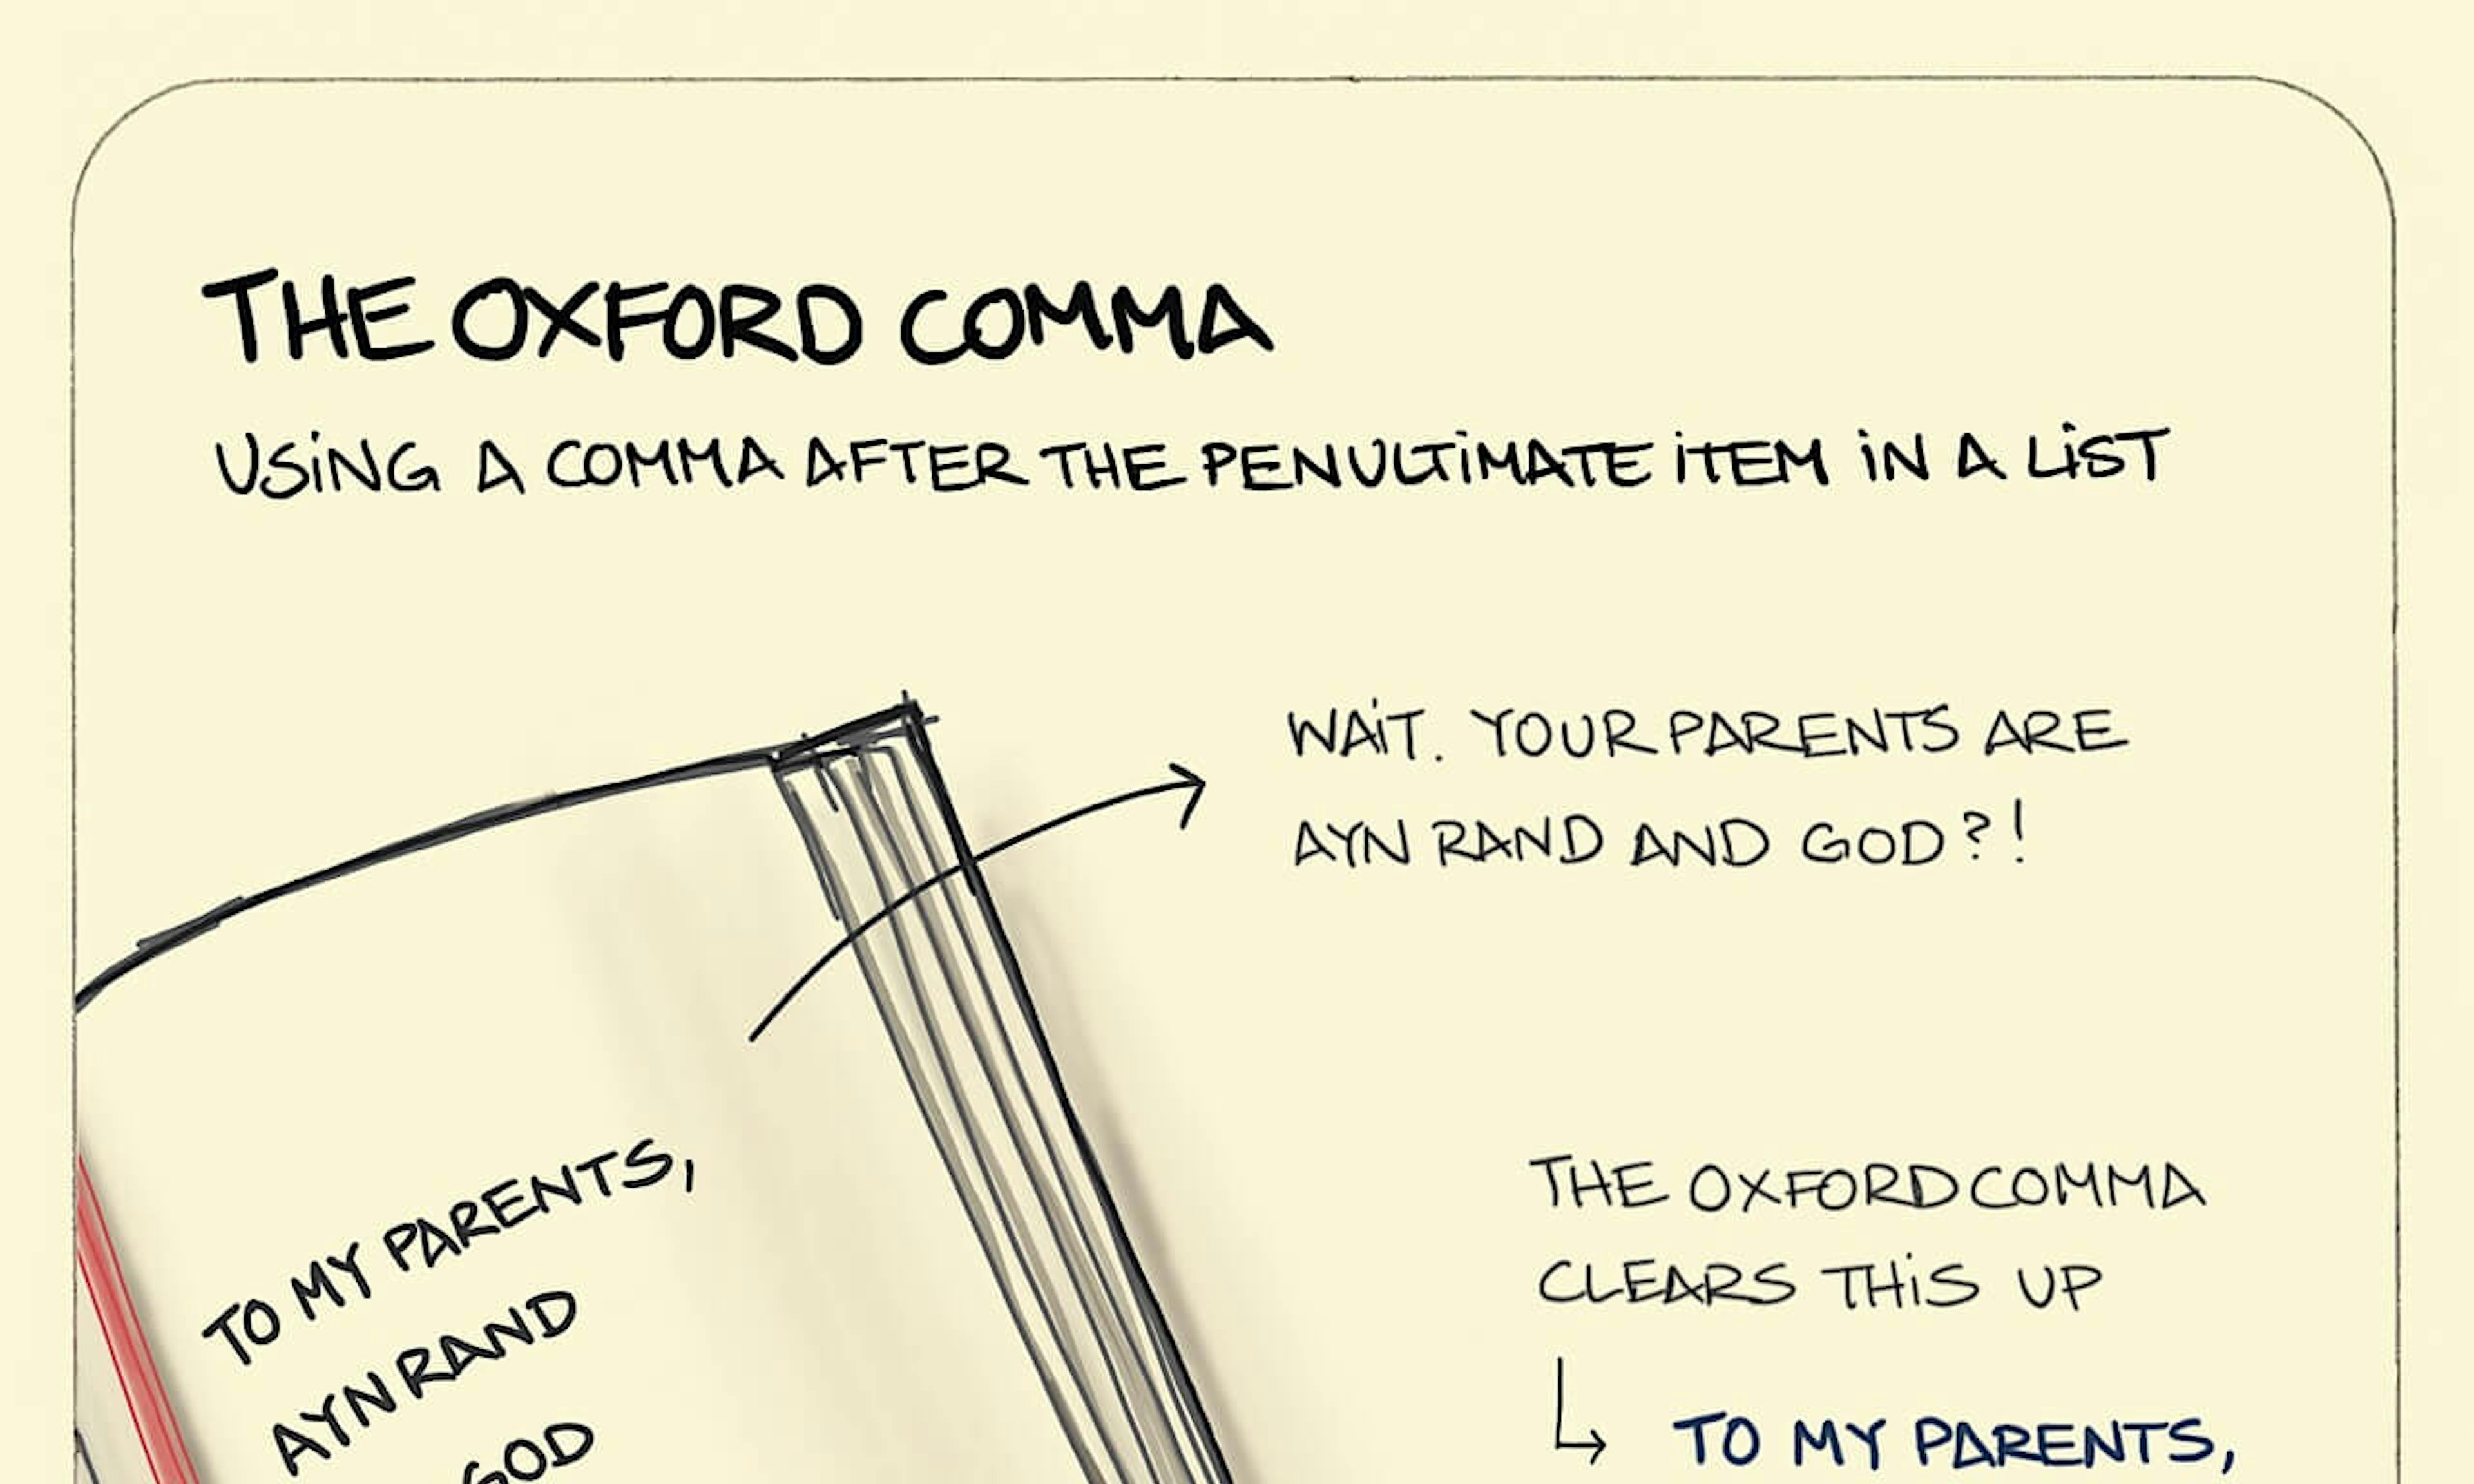 THE OXFORD COMMA
USING A COMMA AFTER THE PENULTIMATE ITEM IN A LIST
WAIT. YOUR PARENTS ARE
AYN RAND AND GOD?!
TO MY PARENTS,
AYN RAND
GOD
THE OXFORD COMMA
CLEARS THIS UP
TO MY PARENTS,